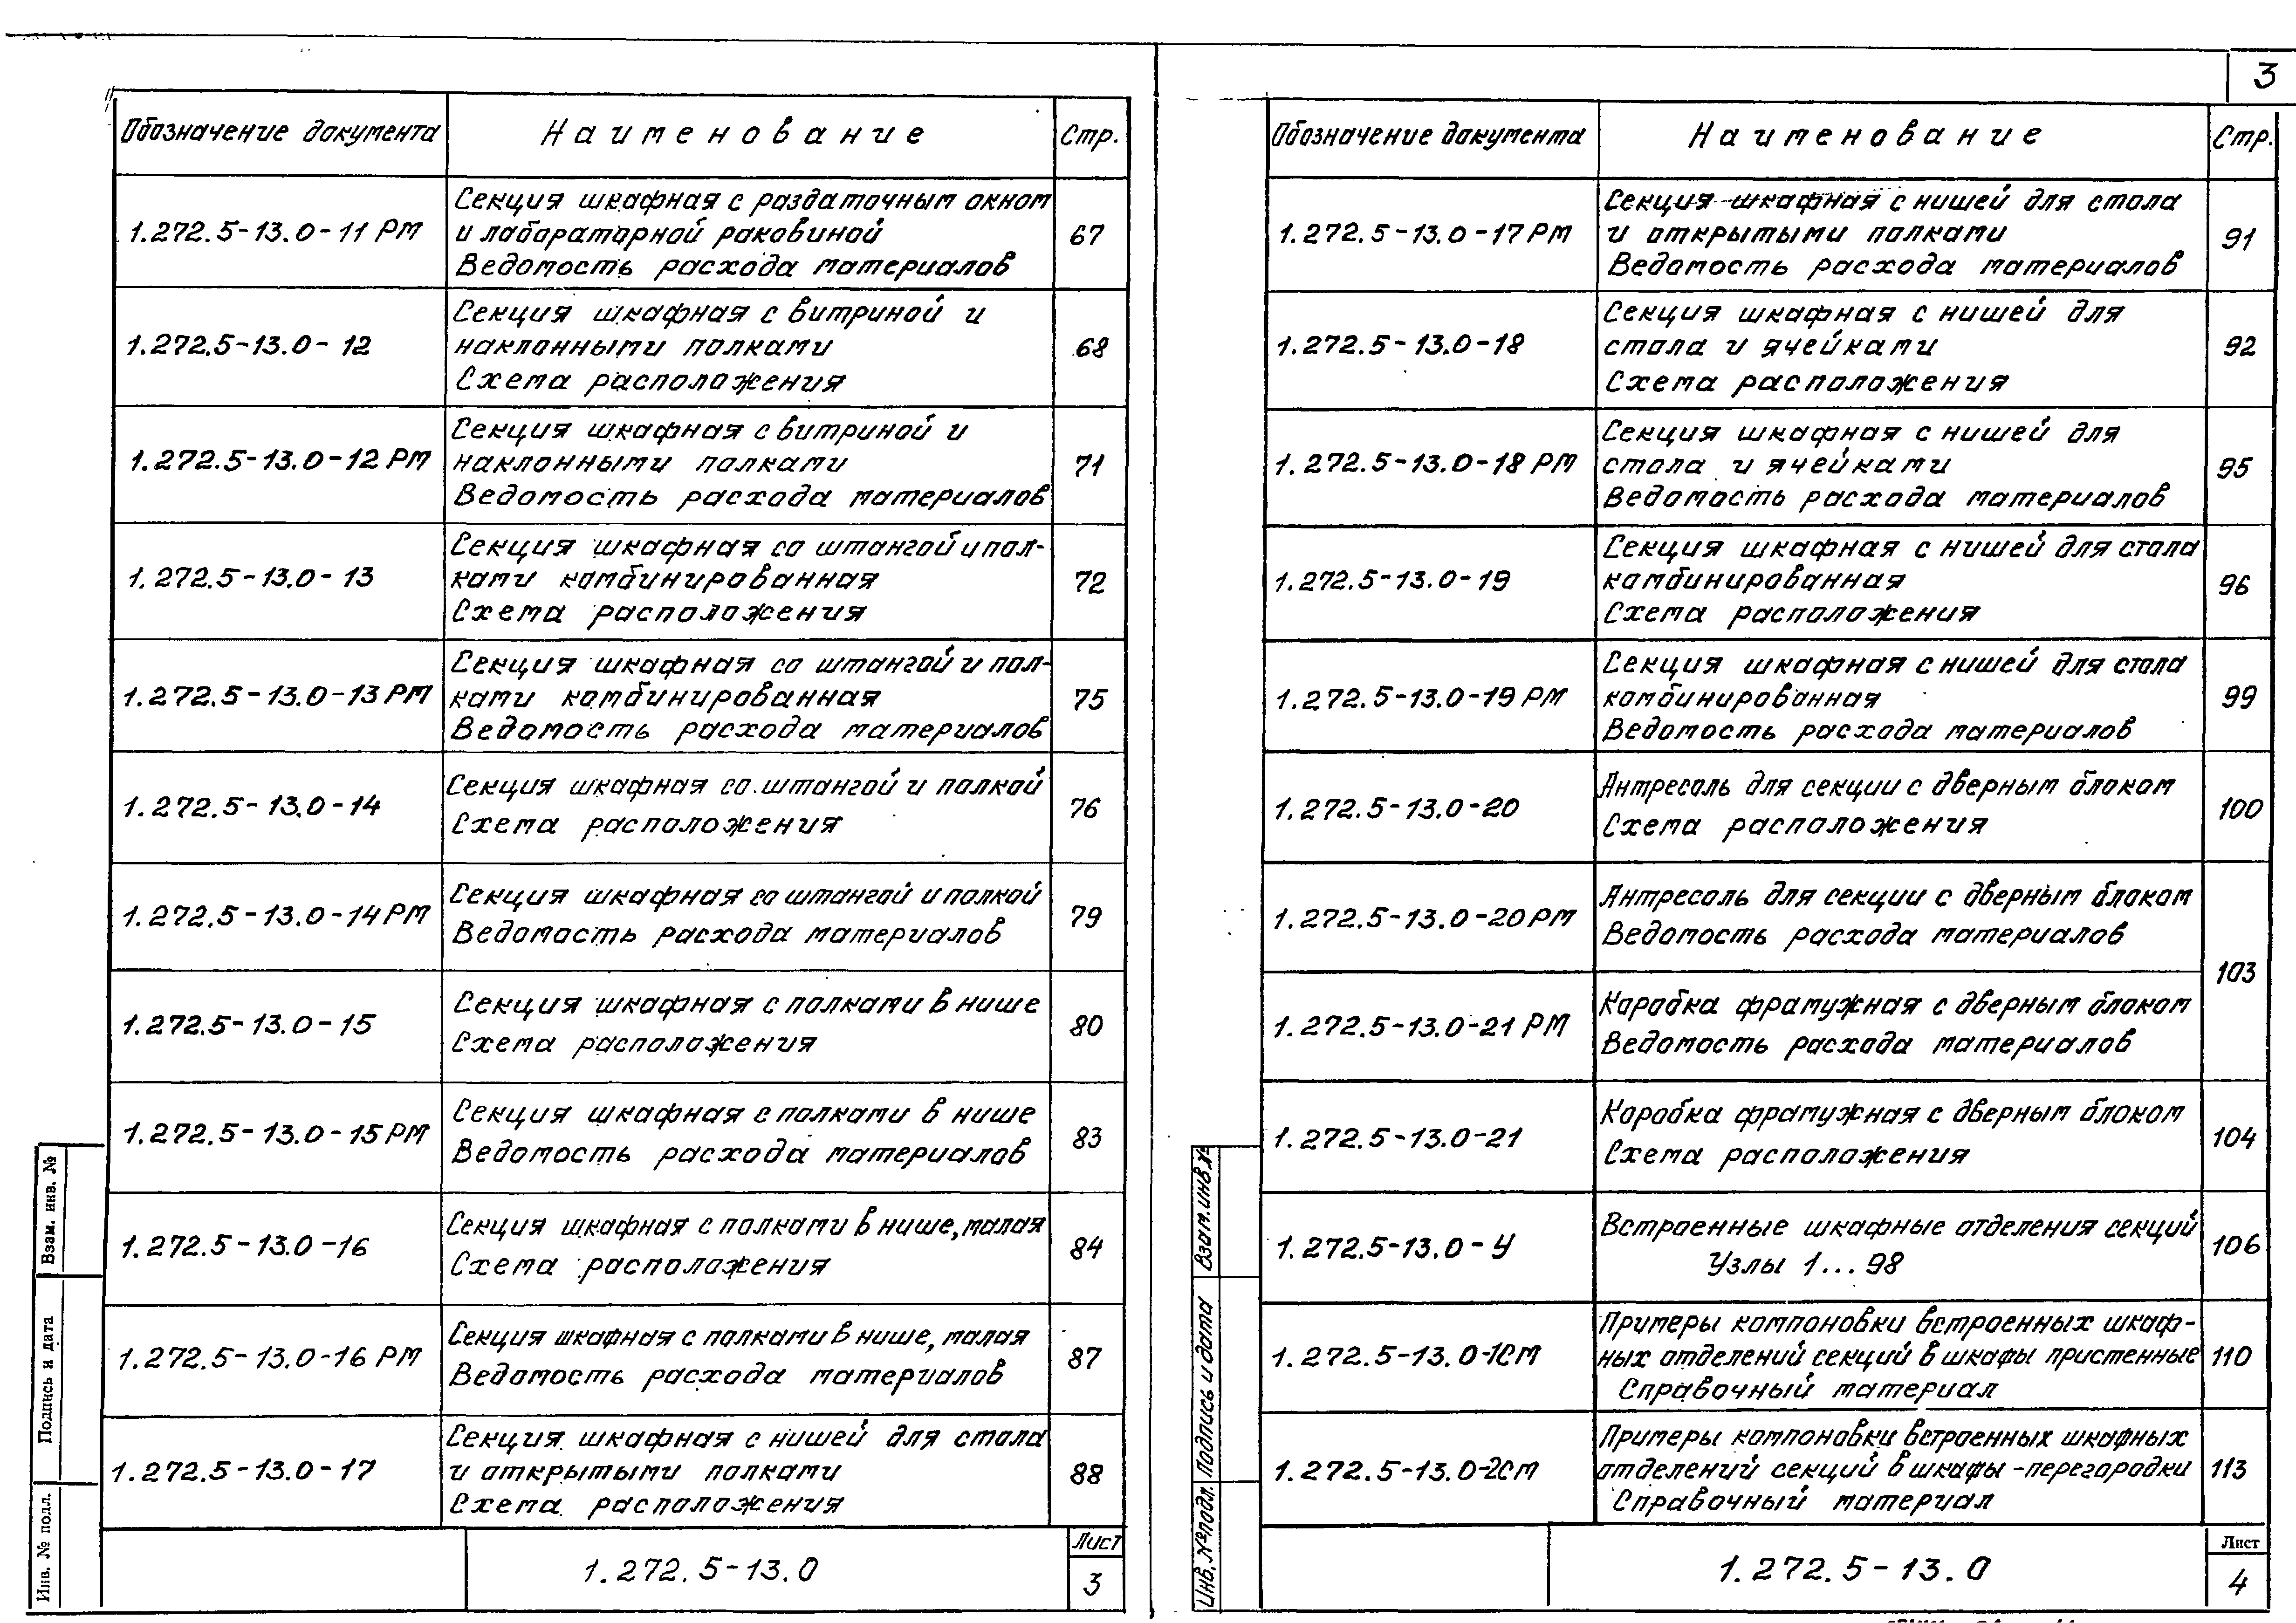 3
Обозначение документа Наименование Стр.
1.272.5-13.0-11 РМ Секция шкафная с раздаточным окном
и лабораторной раковиной 67
Ведомость расхода материалов
1.272.5-13.0-12 Секция шкафная с витриной и
наклонными полками 68
Схема расположения
1.272.5-13.0-12 РМ Секция шкафная с витриной и
наклонными полками 71
Ведомость расхода материалов
1.272.5-13.0-13 Секция шкафная со штангой и пол-
ками комбинированная 72
Схема расположения
1.272.5-13.0-13 РМ Секция шкафная со штангой и пол-
ками комбинированная 75
Ведомость расхода материалов
1.272.5-13.0-14 Секция шкафная со штангой и полкой 76
Схема расположения
1.272.5-13.0-14 РМ Секция шкафная со штангой и полкой 79
Ведомость расхода материалов
1.272.5-13.0-15 Секция шкафная с полками в нише 80
Схема расположения
1.272.5-13.0-15 РМ Секция шкафная с полками в нише 83
Ведомость расхода материалов
1.272.5-13.0-16 Секция шкафная с полками в нише, малая 84
Схема расположения
1.272.5-13.0-16 РМ Секция шкафная с полками в нише, малая 87
Ведомость расхода материалов
1.272.5-13.0-17 Секция шкафная с нишей для стола
и открытыми полками 88
Схема расположения
1.272.5-13.0
Лист
3
Взам. инв. №
Подпись и дата
Инв. № подл.
Обозначение документа Наименование Стр.
1.272.5-13.0-17 РМ Секция шкафная с нишей для стола
и открытыми полками 91
Ведомость расхода материалов
1.272.5-13.0-18 Секция шкафная с нишей для
стола и ячейками 92
Схема расположения
1.272.5-13.0-18 РМ Секция шкафная с нишей для
стола и ячейками 95
Ведомость расхода материалов
1.272.5-13.0-19 Секция шкафная с нишей для стола
комбинированная 96
Схема расположения
1.272.5-13.0-19 РМ Секция шкафная с нишей для стола
комбинированная 99
Ведомость расхода материалов
1.272.5-13.0-20 Антресоль для секции с дверным блоком 100
Схема расположения
1.272.5-13.0-20 РМ Антресоль для секции с дверным блоком
Ведомость расхода материалов
103
1.272.5-13.0-21 РМ Коробка фрамужная с дверным блоком
Ведомость расхода материалов
1.272.5-13.0-21 Коробка фрамужная с дверным блоком 104
Схема расположения
1.272.5-13.0-У Встроенные шкафные отделения секций 106
Узлы 1...98
1.272.5-13.0-1СМ Примеры компоновки встроенных шкаф-
ных отделений секций в шкафы пристенные 110
Справочный материал
1.272.5-13.0-2СМ Примеры компоновки встроенных шкафных
отделений секций в шкафы-перегородки 113
Справочный материал
1.272.5-13.0
Лист
4
Взам.инв.№
Подпись и дата
Инв.№подл.